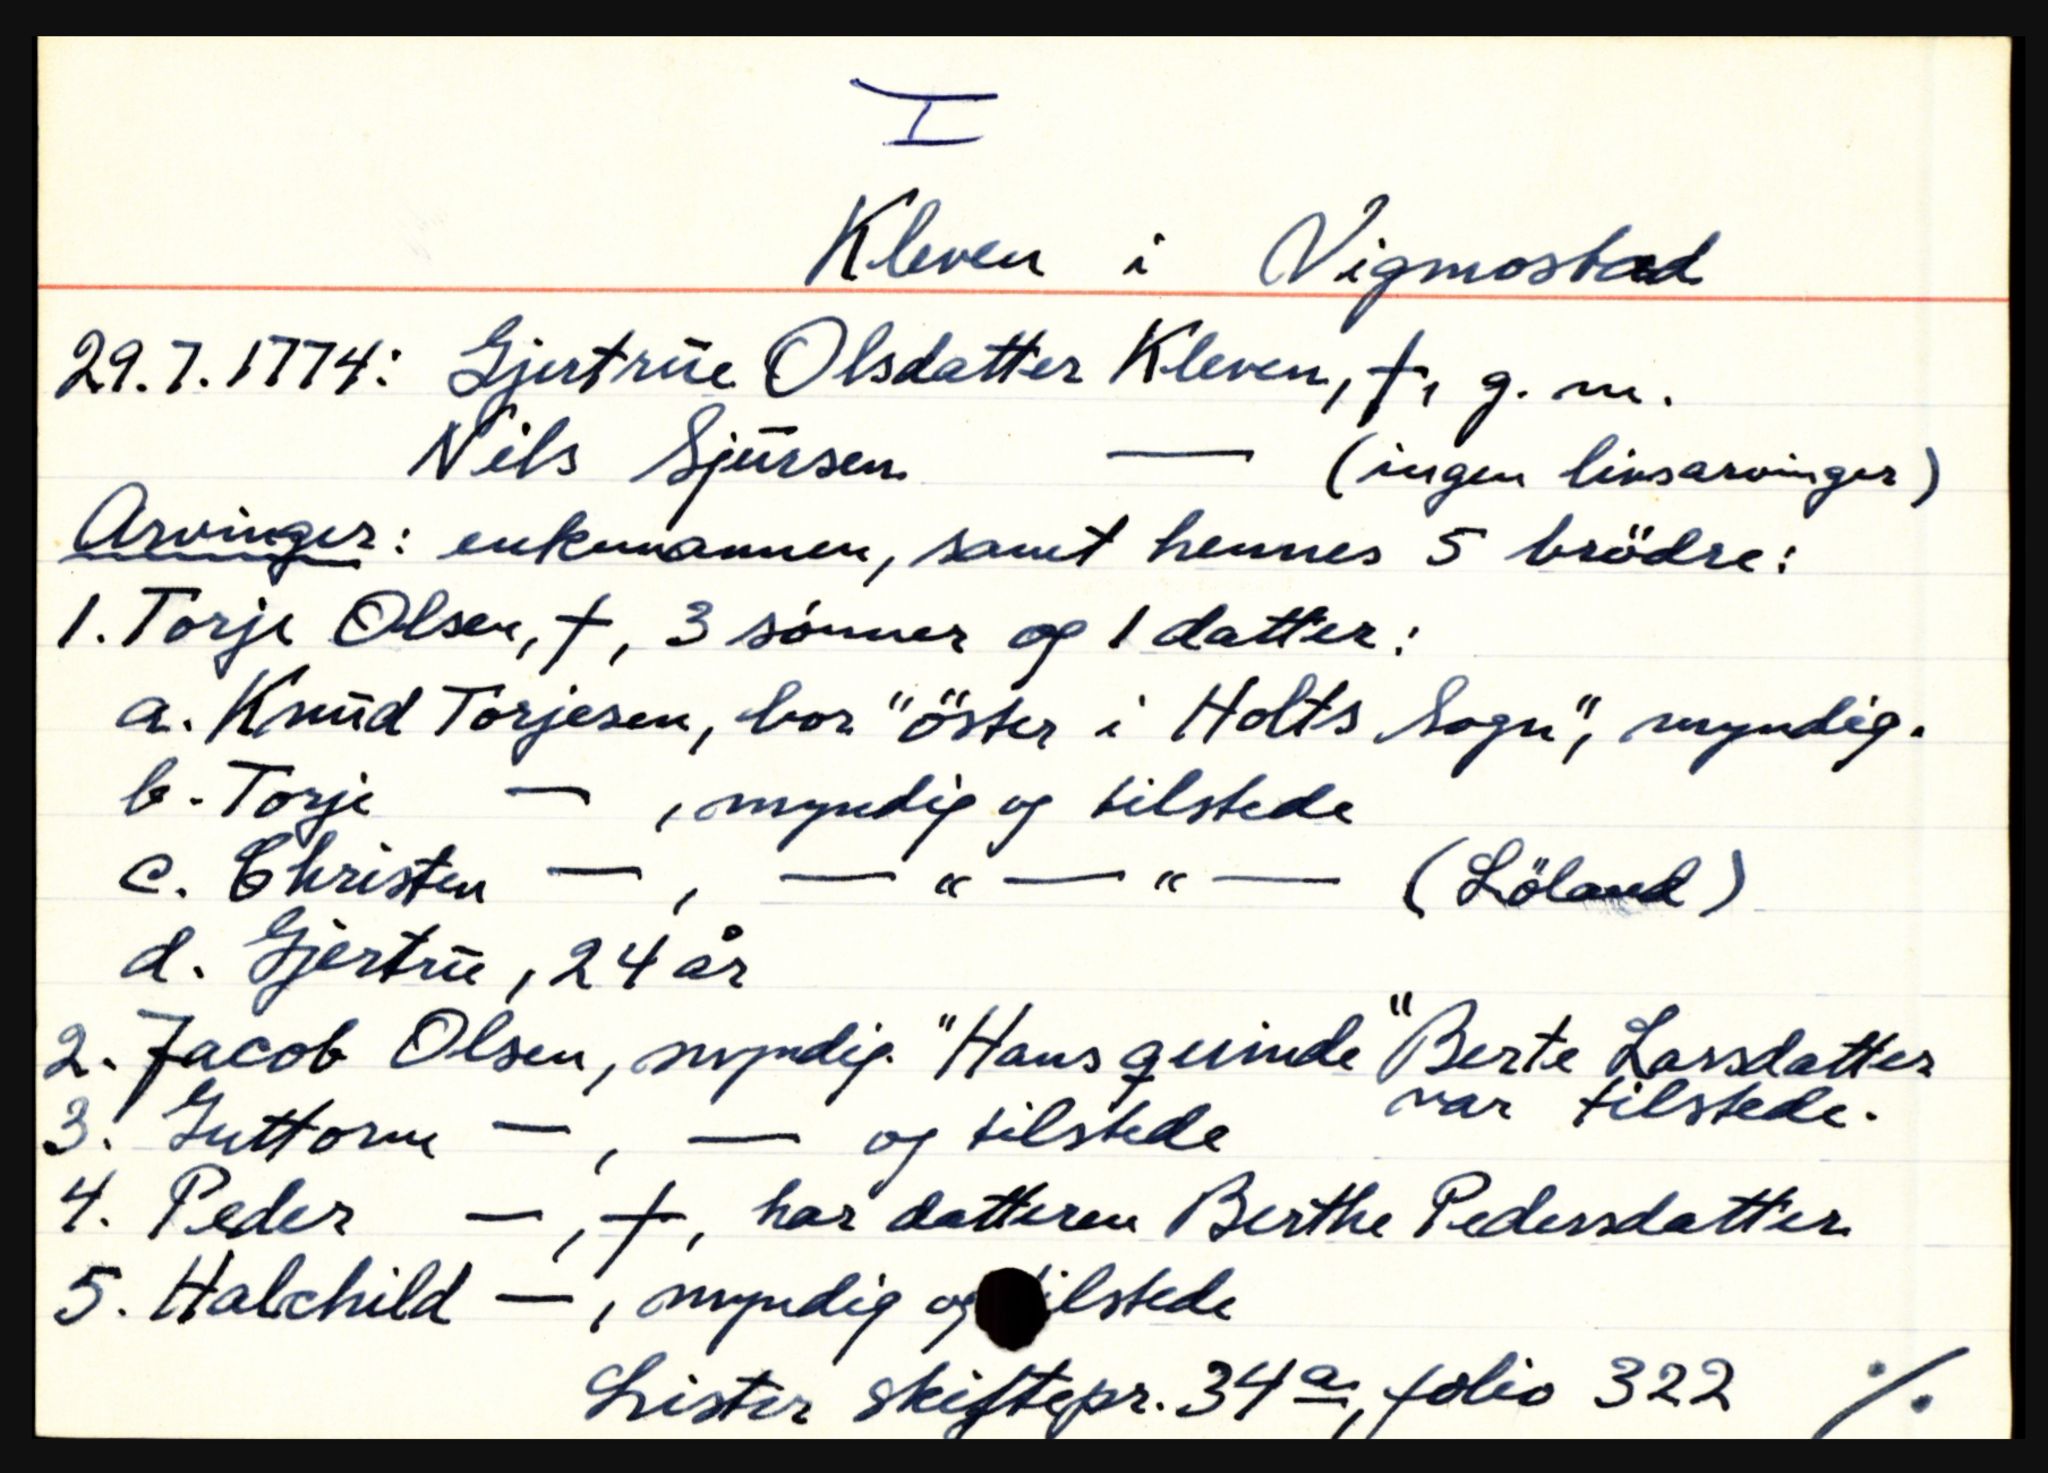 I
Kleven i Vigmostad
29.7.1774: Gjertrūe Olsdatter Kleven, †, g. m.
Nils Sjūrsen — (ingen livsarvinger)
Arvinger: enkemannen, samt hennes 5 brödre:
1. Torje Olsen, †, 3 sönner og 1 datter:
a. Knūd Torjesen, bor "öster i Holts Sogn", myndig.
b. Torje — , myndig og tilstede
c. Christen — , — " — " — (Löland)
d. Gjertrūe, 24 år
2. Jacob Olsen, myndig. "Hans qvinde" Berte Larsdatter
var tilstede.
3. Guttorm — , — og tilstede
4. Peder — , †, har datteren Berthe Pedersdatter
5. Halchild — , myndig og tilstede
Lister skiftepr. 34a, folio 322 ./.